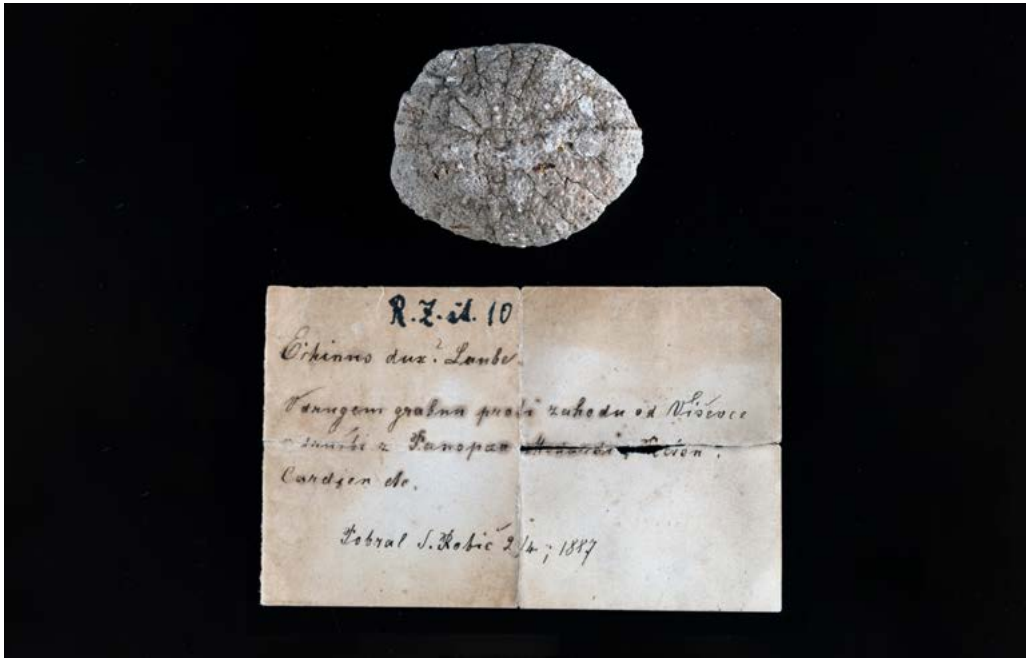 R. Z. št. 10
Echinno dux? Laube.
V drugem grabnu proti zahodu od Viševce
v družbi z Panopae
Cardien etc.
Pobral S. Robič 2/4; 1887